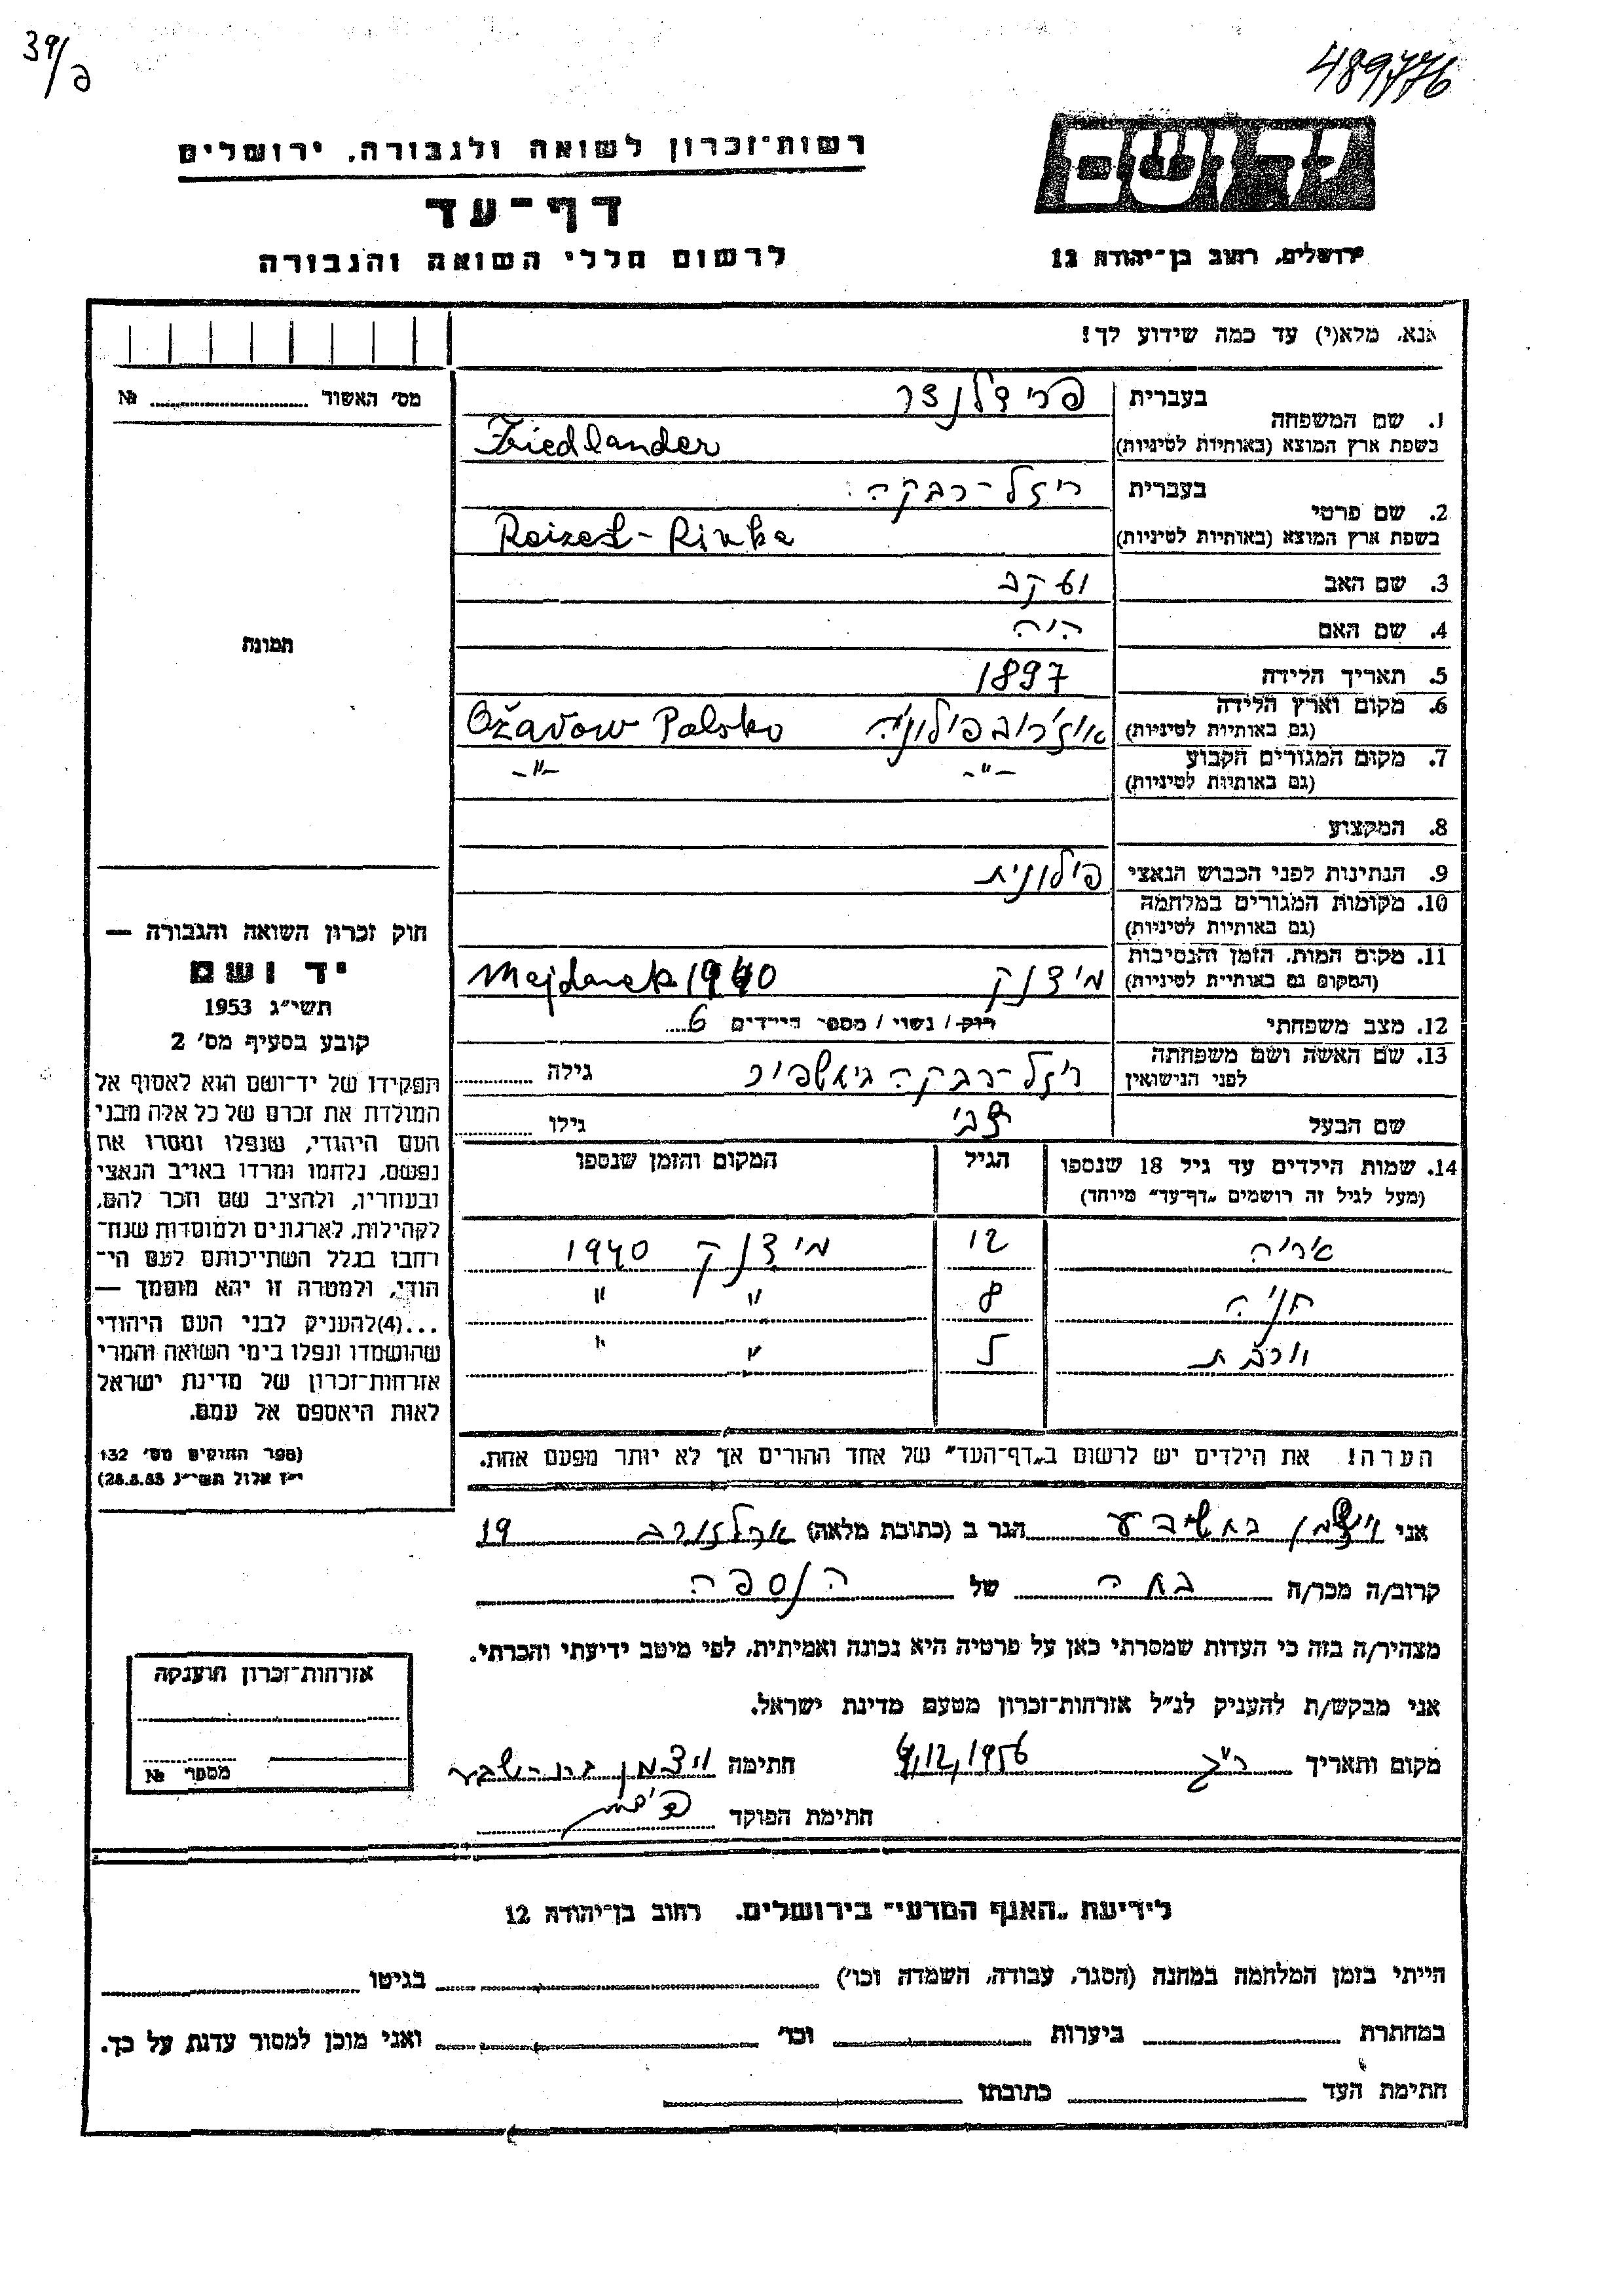 39/
489776
רשות־זכרון לשואה ולגבורה, ירושלים
יד ושם
דף־עד
לרשום חללי השואה והגבורה
ירושלים, רחוב בן־יהודה 12
אנא, מלא(י) עד כמה שידוע לך!
מס' האשור № 
1. שם המשפחה בעברית פרידלנדר
בשפת ארץ המוצא (באותיות לטיניות) Friedlander
2. שם פרטי בעברית ריזל-רבקה
בשפת ארץ המוצא (באותיות לטיניות) Reizel-Rivka
3. שם האב יעקב
4. שם האם חיה
תמונה
5. תאריך הלידה 1897
6. מקום וארץ הלידה (גם באותיות לטיניות) אוז'רוב פולניה Ožarow Polsko
7. מקום המגורים הקבוע (גם באותיות לטיניות) -"- -"-
8. המקצוע
9. הנתינות לפני הכבוש הנאצי פולונית
10. מקומות המגורים במלחמה (גם באותיות לטיניות)
11. מקום המות, הזמן והנסיבות (המקום גם באותיות לטיניות) מידנק Majdanek 1940
12. מצב משפחתי רוק/ נשוי/ מספר הילדים 6
13. שם האשה ושם משפחתה לפני הנישואין ריזל-רבקה גילה
שם הבעל צבי גילו
14. שמות הילדים עד גיל 18 שנספו הגיל המקום והזמן שנספו
(מעל לגיל זה רושמים „דף־עד" מיוחד)
אריה 12 מידנק 1940
חניה 8 " "
" "
הערה! את הילדים יש לרשום ב„דף־העד" של אחד ההורים אך לא יותר מפעם אחת.
חוק זכרון השואה והגבורה —
יד ושם
תשי"ג 1953
קובע בסעיף מס' 2
תפקידו של יד־ושם הוא לאסוף אל
המולדת את זכרם של כל אלה מבני
העם היהודי, שנפלו ומסרו את
נפשם, נלחמו ומרדו באויב הנאצי
ובעוזריו, ולהציב שם וזכר להם,
לקהילות, לארגונים ולמוסדות שנח־
רחבו בגלל השתייכותם לעם הי־
הודי, ולמטרה זו יהא מוסמך —
...(4)להעניק לבני העם היהודי
שהושמדו ונפלו בימי השואה והמרי
אזרחות־זכרון של מדינת ישראל
לאות היאספם אל עמם.
(ספר החוקים מס' 132
י"ז אלול תשי"ג 28.8.53)
אני ויצמן בת שבע הגר ב (כתובת מלאה) ארלוזורוב 19
קרוב/ה מכר/ה בתה של הנספה
מצהיר/ה בזה כי העדות שמסרתי כאן על פרטיה היא נכונה ואמיתית, לפי מיטב ידיעתי והכרתי.
אני מבקש/ת להעניק לנ"ל אזרחות־זכרון מטעם מדינת ישראל.
מקום ותאריך ר"ג 4,12,1956 חתימה ויצמן בת-שבע
חתימת הפוקד
אזרחות־זכרון הוענקה
מספר №
לידיעת „האגף המדעי" בירושלים, רחוב בן־יהודה 12
הייתי בזמן המלחמה במחנה (הסגר, עבודה, השמדה וכו') בגיטו
במחתרת ביערות וכו' ואני מוכן למסור עדות על כך.
חתימת העד כתובתו